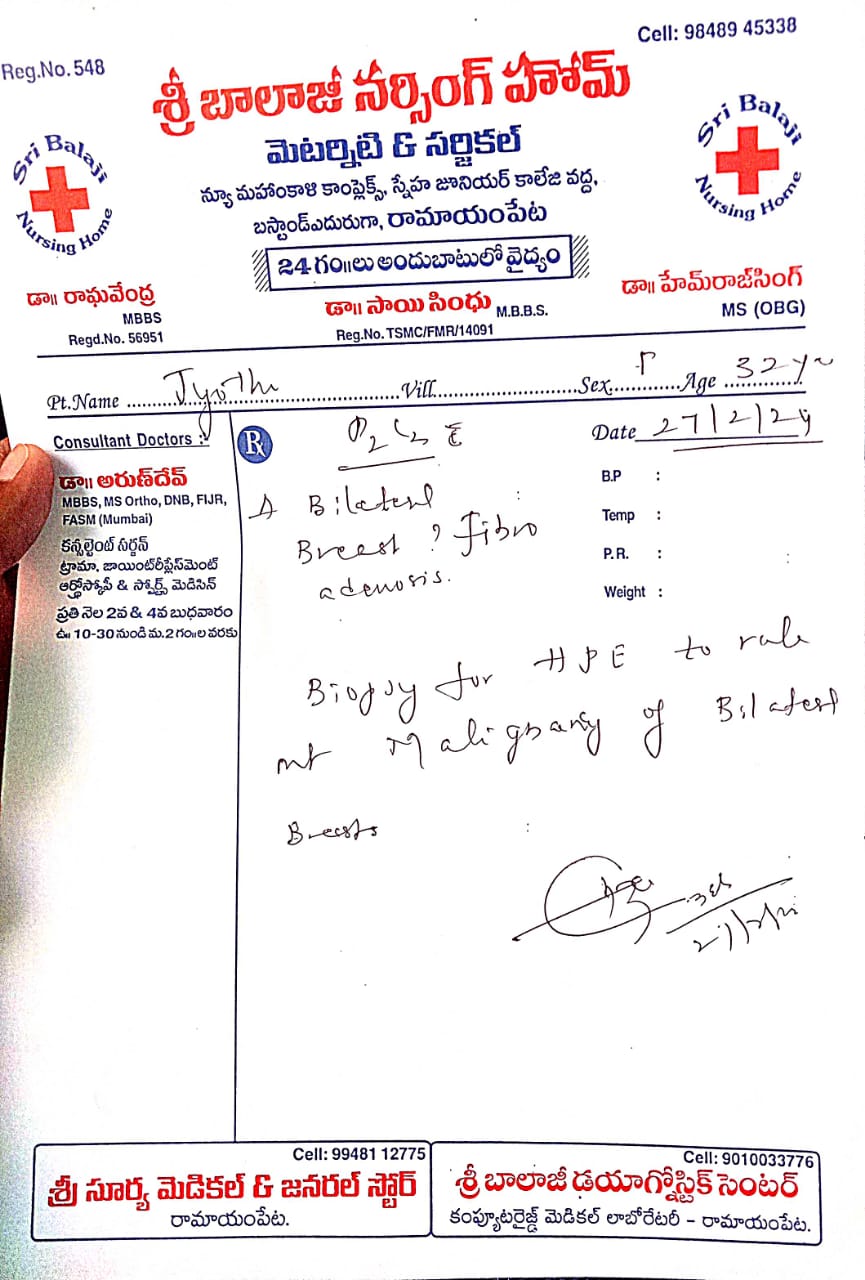 Cell: 98489 45338
Reg.No. 548
శ్రీ బాలాజీ నర్సింగ్ హోమ్
మెటర్నిటి & సర్జికల్
Sri Balaji Nursing Home
Sri Balaji Nursing Home
న్యూ మహాంకాళి కాంప్లెక్స్, స్నేహ జూనియర్ కాలేజి వద్ద,
బస్టాండ్ఎదురుగా, రామాయంపేట
24 గం॥లు అందుబాటులో వైద్యం
డా॥ రాఘవేంద్ర
MBBS
Regd.No. 56951
డా॥ సాయి సింధు M.B.B.S.
Reg.No. TSMC/FMR/14091
డా॥ హేమ్‌రాజ్‌సింగ్
MS (OBG)
Pt.Name Jyothi Vill Sex F Age 32 yrs
Consultant Doctors :
డా॥ అరుణ్‌దేవ్
MBBS, MS Ortho, DNB, FIJR,
FASM (Mumbai)
కన్సల్టెంట్ సర్జన్
ట్రామా, జాయింట్‌రీప్లేస్‌మెంట్
ఆర్థ్రోస్కోపీ & స్పోర్ట్స్ మెడిసిన్
ప్రతి నెల 2వ & 4వ బుధవారం
ఉ॥ 10-30 నుండి మ.2 గం॥ల వరకు
Rx
P2L2 c̄
Date 27/2/24
B.P :
Temp :
P.R. :
Weight :
Δ Bilateral
Breast ? Fibro
adenosis.
Biopsy for HPE to rule
out Malignancy of Bilateral
Breasts
Cell: 99481 12775
శ్రీ సూర్య మెడికల్ & జనరల్ స్టోర్
రామాయంపేట.
Cell: 9010033776
శ్రీ బాలాజీ డయాగ్నోస్టిక్ సెంటర్
కంప్యూటరైజ్డ్ మెడికల్ లాబోరేటరీ - రామాయంపేట.